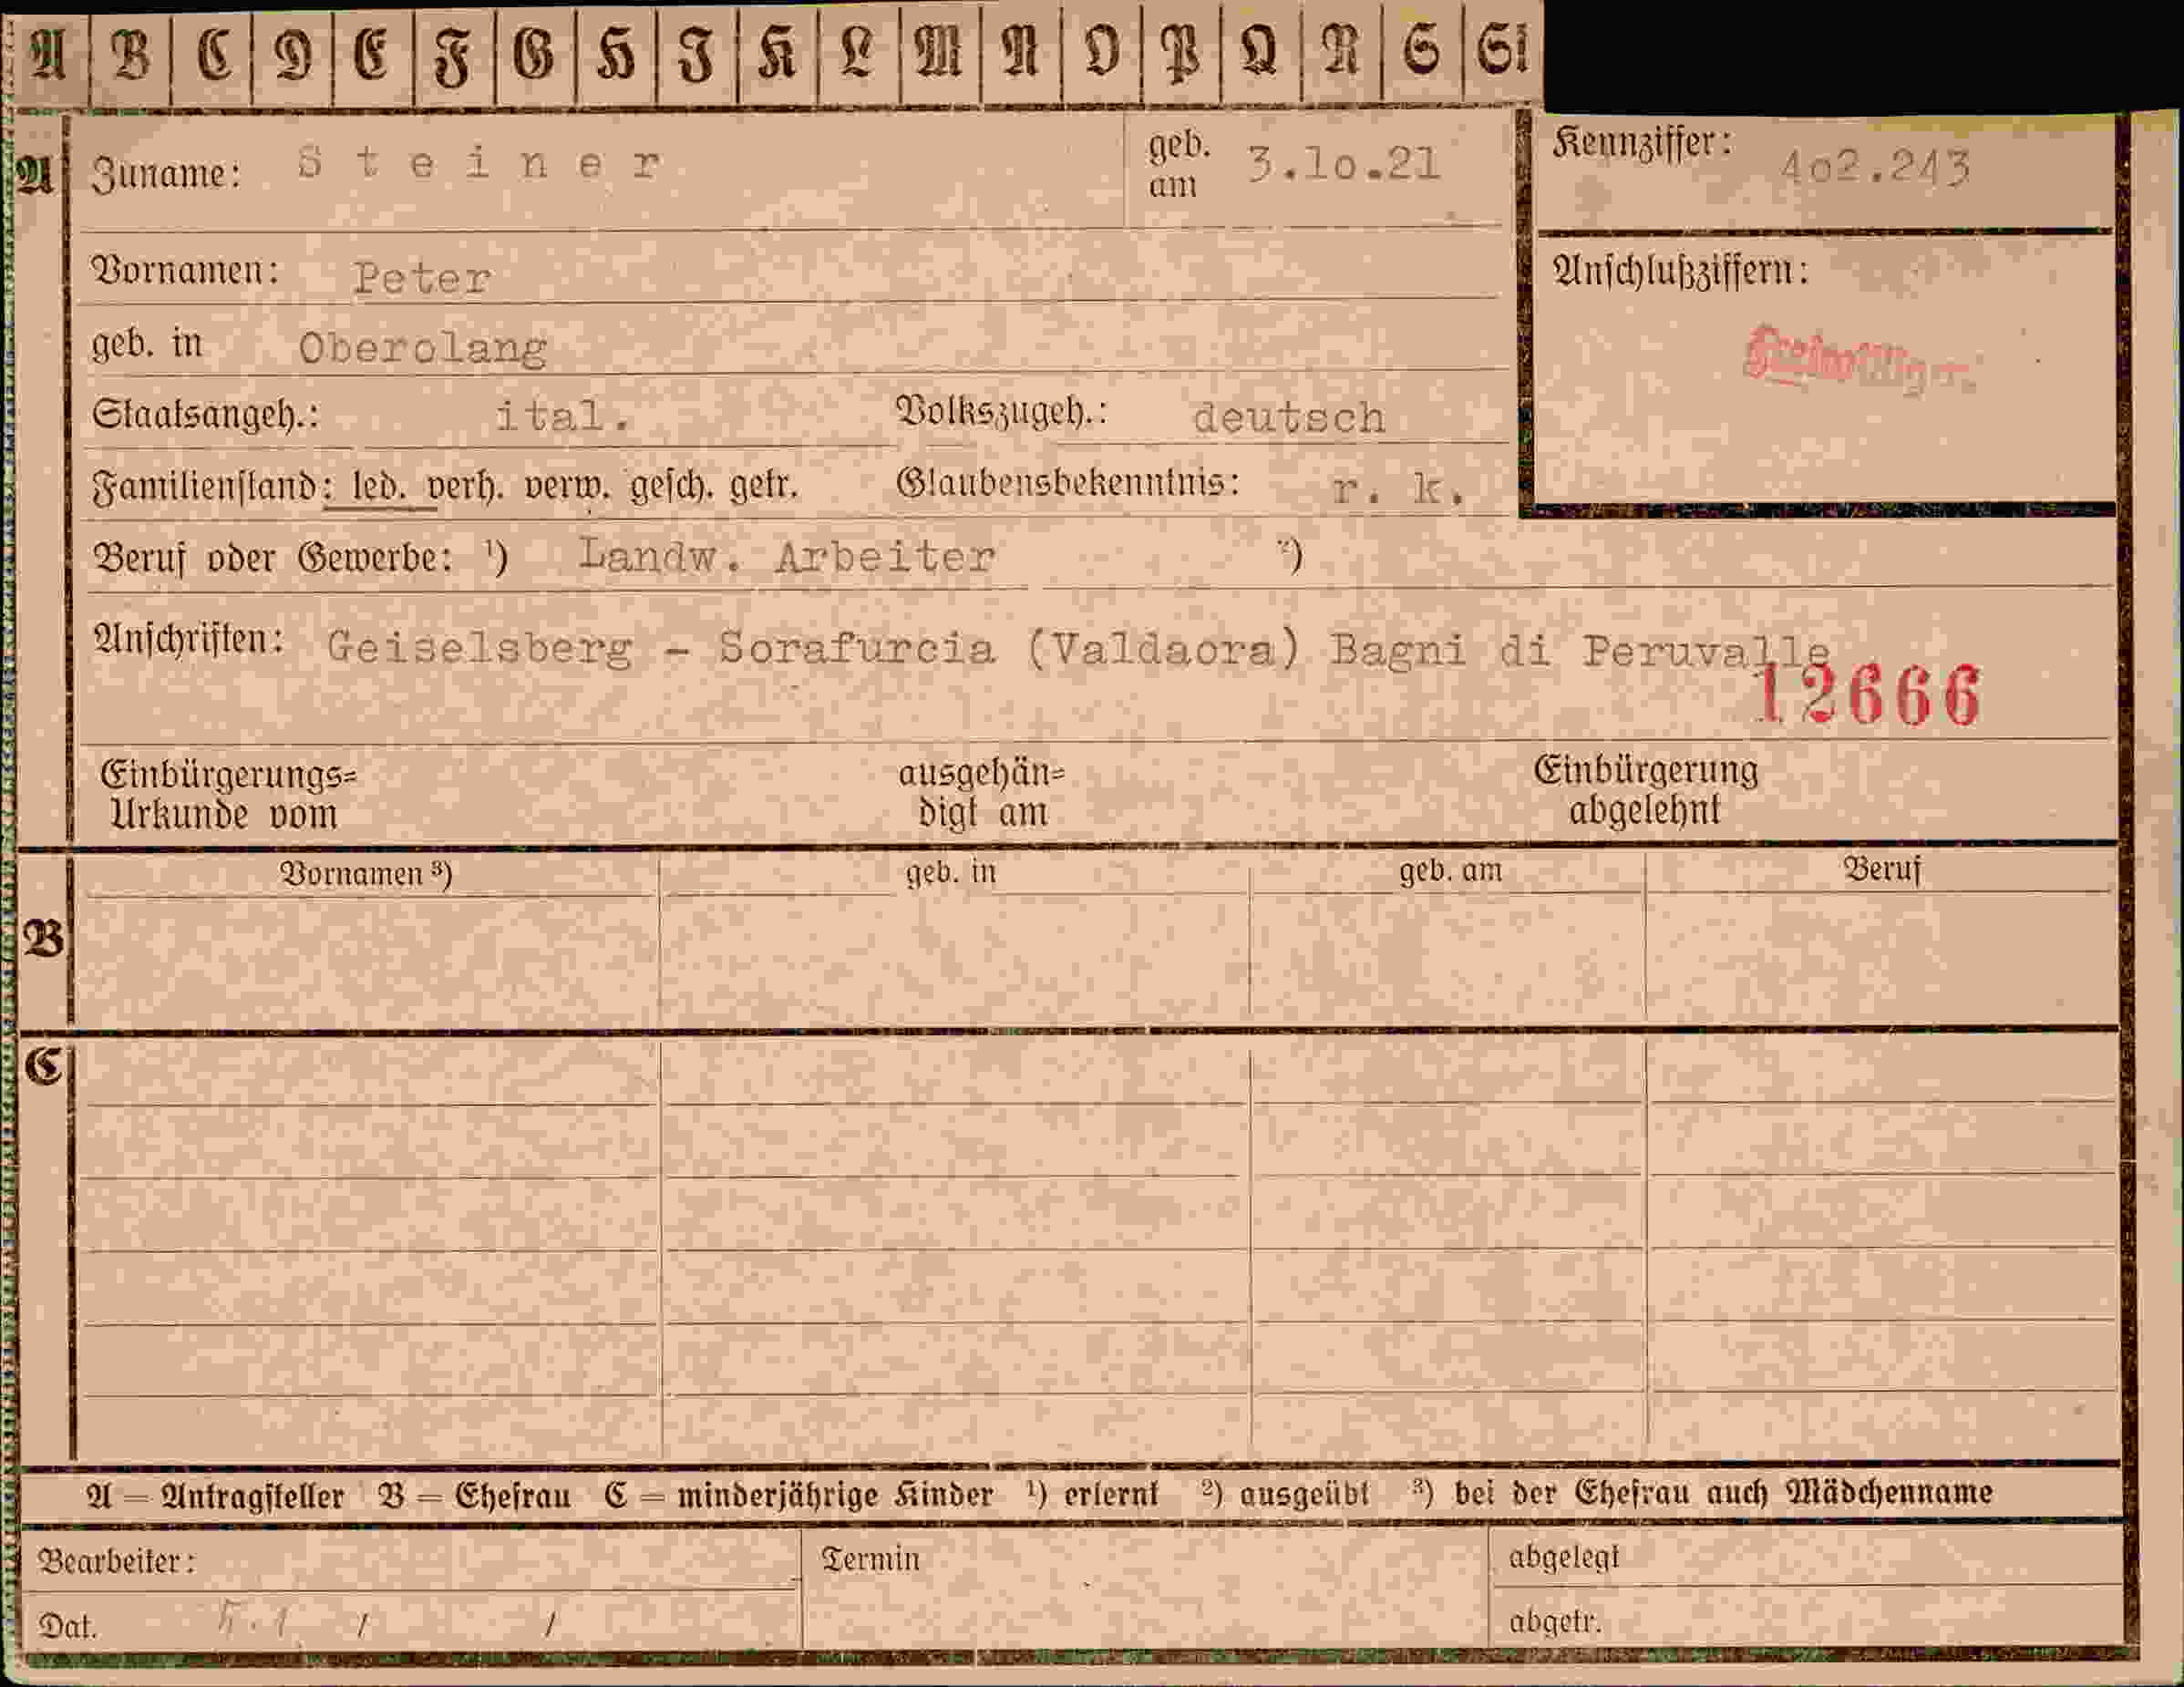 A B C D E F G H I K L M N O P Q R S St
A Zuname: Steiner geb. am 3.10.21 Kennziffer: 402.243
Vornamen: Peter Anschlußziffern:
geb. in Oberolang
Staatsangeh.: ital. Volkszugeh.: deutsch
Familienstand: led. verh. verw. gesch. getr. Glaubensbekenntnis: r. k.
Beruf oder Gewerbe: ¹) Landw. Arbeiter ²)
Anschriften: Geiselsberg - Sorafurcia (Valdaora) Bagni di Peruvalle
12666
Einbürgerungs= ausgehän= Einbürgerung
Urkunde vom digt am abgelehnt
Vornamen ³) geb. in geb. am Beruf
B
C
A = Antragsteller B = Ehefrau C = minderjährige Kinder ¹) erlernt ²) ausgeübt ³) bei der Ehefrau auch Mädchenname
Bearbeiter: Termin abgelegt
Dat. / / abgetr.